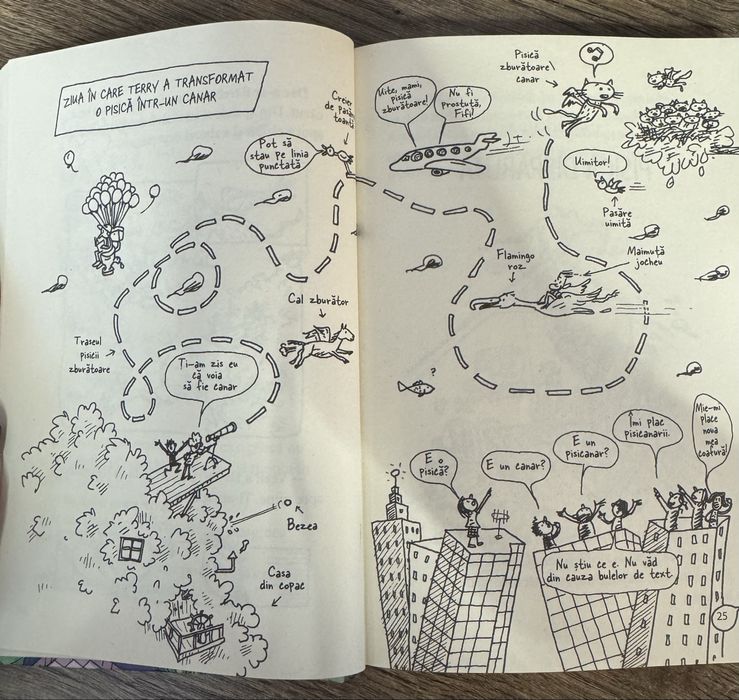 ZIUA ÎN CARE TERRY A TRANSFORMAT
O PISICĂ ÎNTR-UN CANAR
Creier
de pasăre
toantă
Pot să
stau pe linia
punctată
Cal zburător
Traseul
pisicii
zburătoare
Ți-am zis eu
că voia
să fie canar
Bezea
Casa
din copac
Uite, mami,
pisică
zburătoare!
Nu fi
prostuță,
Fifi!
Pisică
zburătoare\
canar
Uimitor!
Pasăre
uimită
Flamingo
roz
Maimuță
jocheu
?
E o
pisică?
E un canar?
E un
pisicanar?
Îmi plac
pisicanarii.
Mie-mi
place
noua
mea
coafură!
Nu știu ce e. Nu văd
din cauza bulelor de text.
25